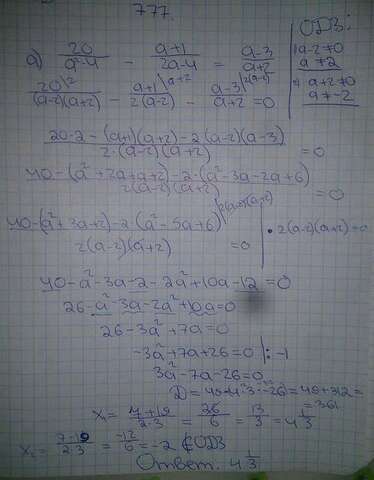 777.
а) 20/(a²-4) - (a+1)/(2a-4) = (a-3)/(a+2)
ОДЗ:
a-2≠0
a≠2
a+2≠0
a≠-2
20^{\2}/((a-2)(a+2)) - (a+1)^{\a+2}/(2(a-2)) - (a-3)^{\2(a-2)}/(a+2) = 0
(20·2-(a+1)(a+2)-2(a-2)(a-3))/(2·(a-2)(a+2)) = 0
(40-(a²+2a+a+2)-2·(a²-3a-2a+6))/(2(a-2)(a+2)) = 0
(40-(a²+3a+2)-2(a²-5a+6))/(2(a-2)(a+2)) = 0 | ·2(a-2)(a+2)=0
40-a²-3a-2-2a²+10a-12=0
26-a²-3a-2a²+10a=0
26-3a²+7a=0
-3a²+7a+26=0 |:-1
3a²-7a-26=0
D=49-4·3·(-26)=49+312=
=361
x₁= (7+19)/(2·3) = 26/6 = 13/3 = 4 1/3
x₂= (7-19)/(2·3) = -12/6 = -2 ∉ ОДЗ
Ответ: 4 1/3